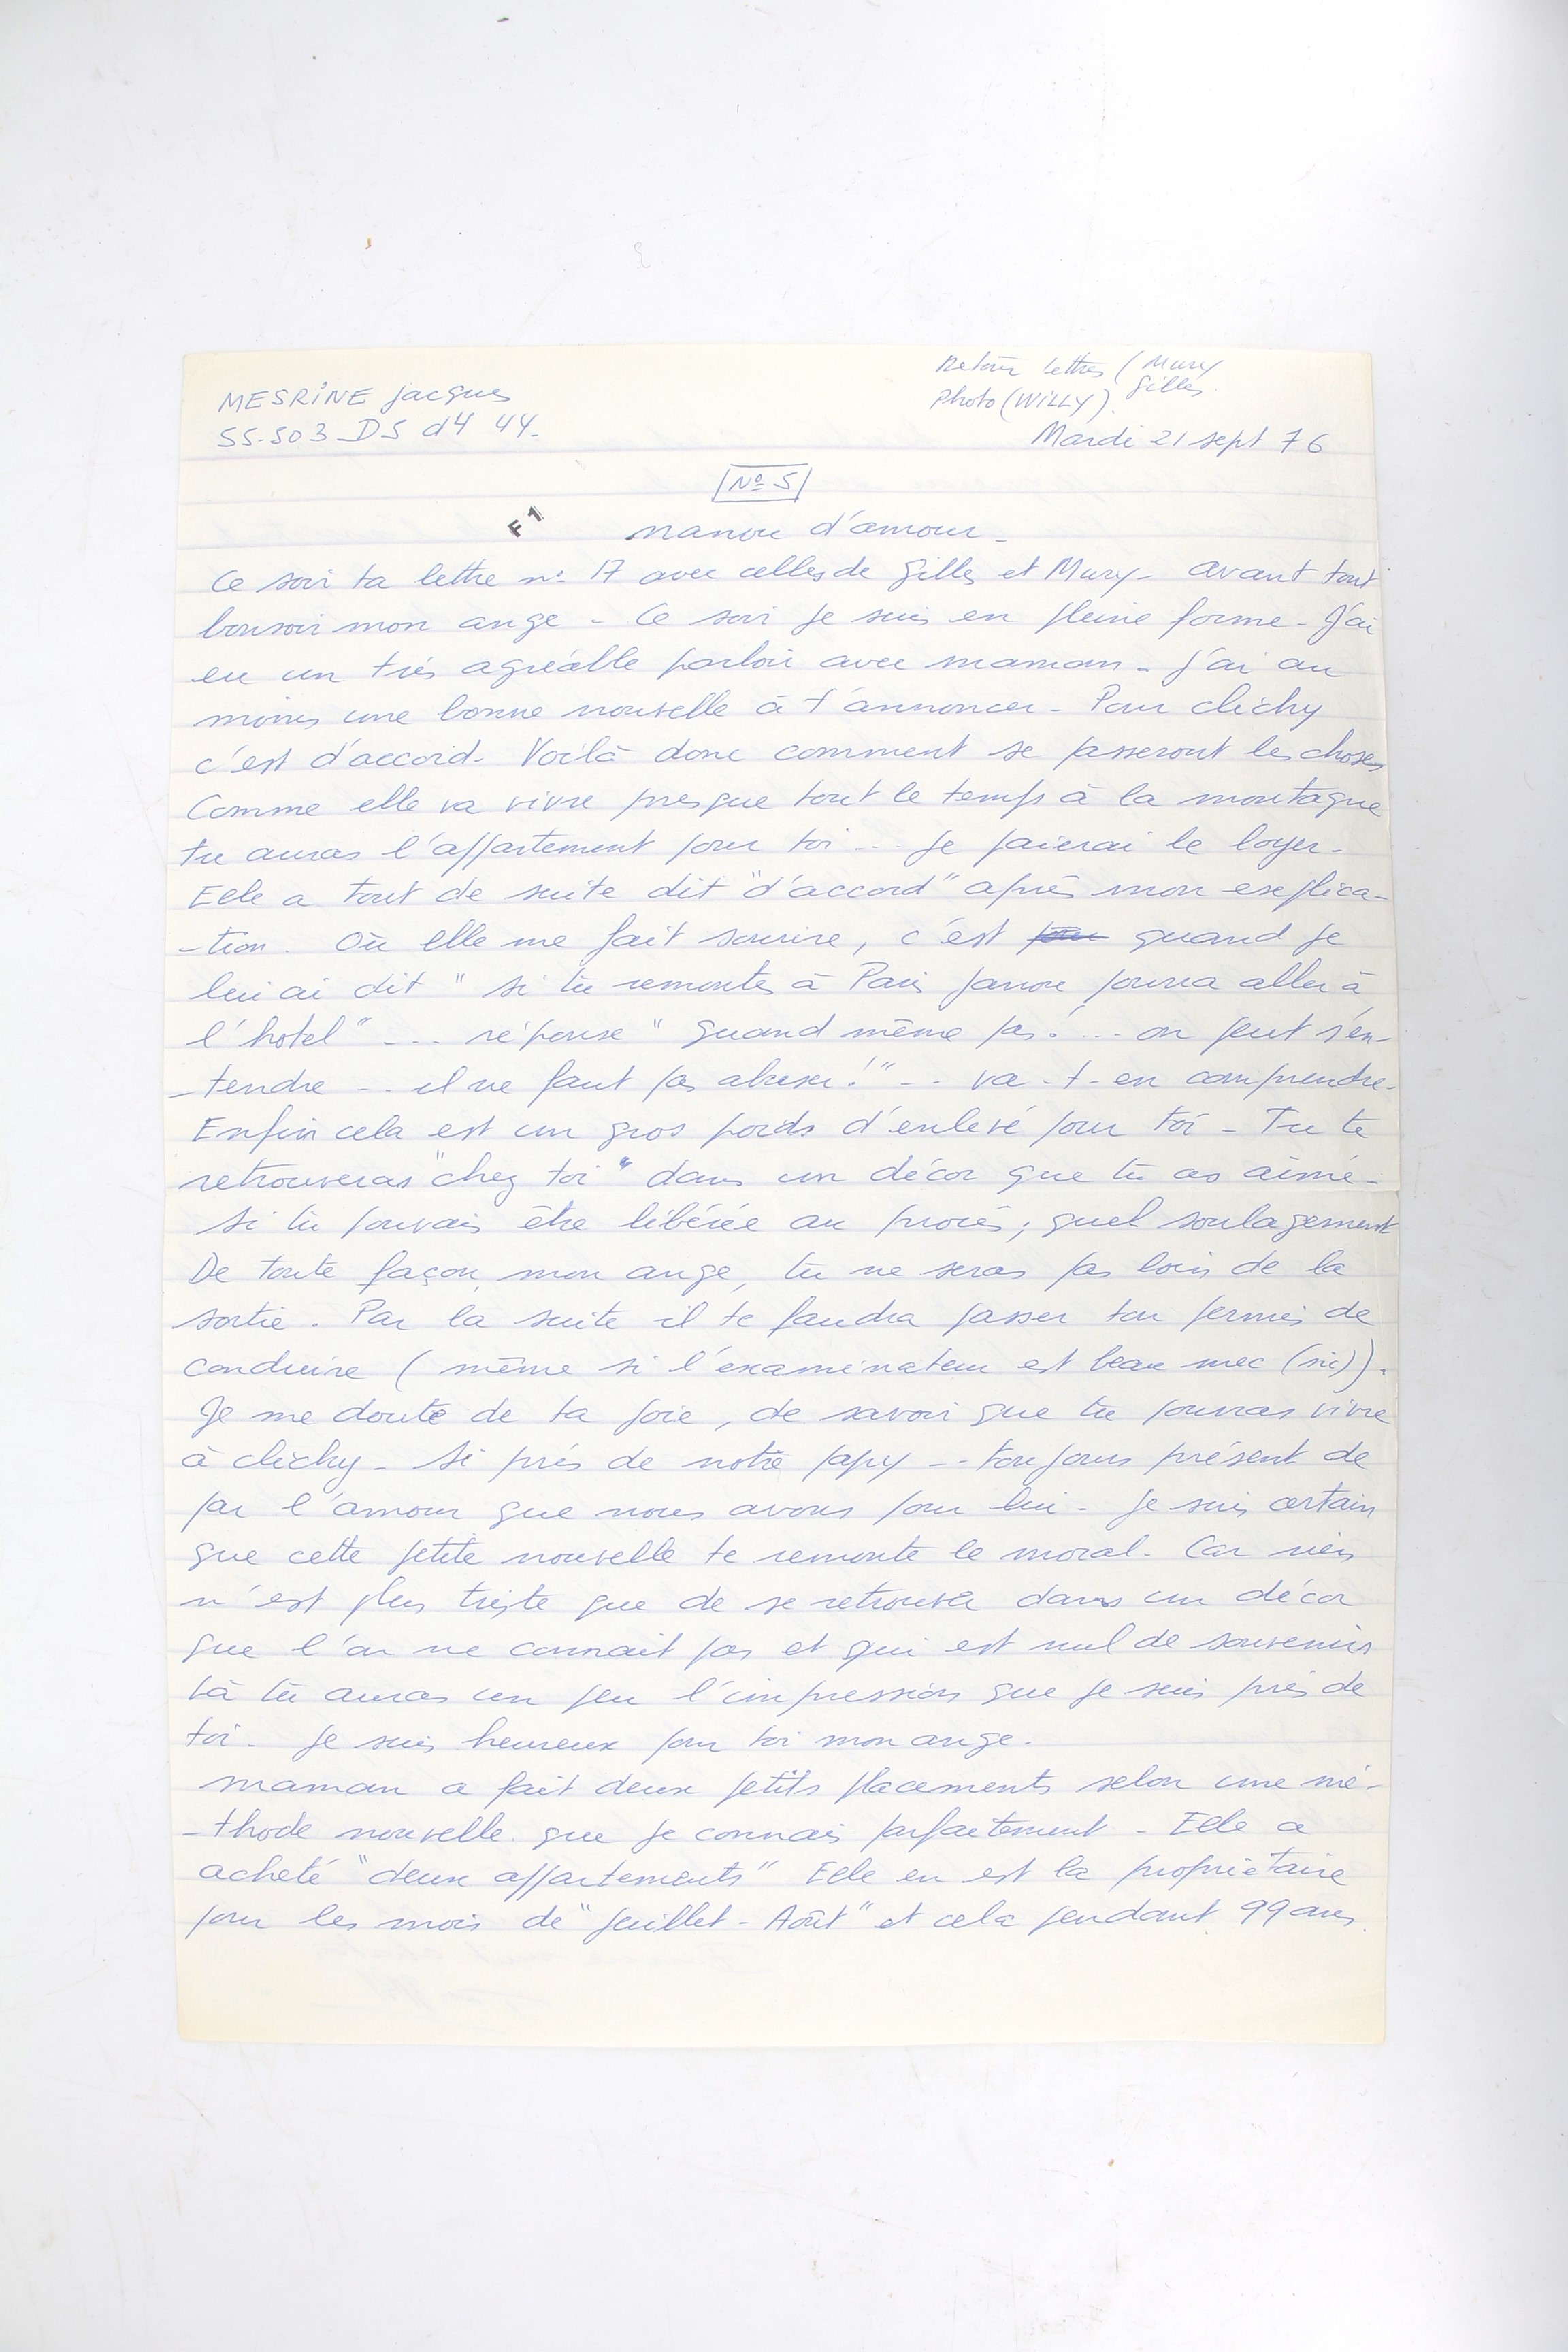 Retour lettres (Mury
Gilles.
Photo (WILLY).
MESRINE Jacques
55-503 D5 d4 44-
Mardi 21 sept 76
N° 5
F 1
nanou d'amour -
Ce soir ta lettre n° 17 avec celles de Gilles et Mury - avant tout
bonsoir mon ange - Ce soir je suis en pleine forme - J'ai
eu un très agréable parloir avec maman - J'ai au
moins une bonne nouvelle à t'annoncer - Pour clichy
c'est d'accord. Voilà donc comment se passeront les choses
Comme elle va vivre presque tout le temps à la montagne
tu auras l'appartement pour toi --- Je paierai le loyer -
Elle a tout de suite dit "d'accord" après mon explica-
-tion. Où elle me fait sourire, c'est quand je
lui ai dit " si tu remontes à Paris Janou pourra aller à
l'hotel" --- réponse " quand même pas ! --- on peut s'en-
-tendre -- il ne faut pas abuser !" -- va-t-en comprendre -
Enfin cela est un gros poids d'enlevé pour toi - Tu te
retrouveras "chez toi" dans un décor que tu as aimé -
Si tu pouvais être libérée au procès ; quel soulagement
De toute façon, mon ange, tu ne seras pas loin de la
sortie. Par la suite il te faudra passer ton permis de
conduire ( même si l'examinateur est beau mec (sic)).
Je me doute de ta joie, de savoir que tu pourras vivre
à clichy - Si près de notre papy -- toujours présent de
par l'amour que nous avons pour lui - Je suis certain
que cette petite nouvelle te remonte le moral - Car rien
n'est plus triste que de se retrouver dans un décor
que l'on ne connait pas et qui est nul de souvenirs
là tu auras un peu l'impression que je suis près de
toi - Je suis heureux pour toi mon ange -
maman a fait deux petits placements selon une mé-
-thode nouvelle que je connais parfaitement - Elle a
acheté "deux appartements" Elle en est la propriétaire
pour les mois de "Juillet - Août" et cela pendant 99 ans.